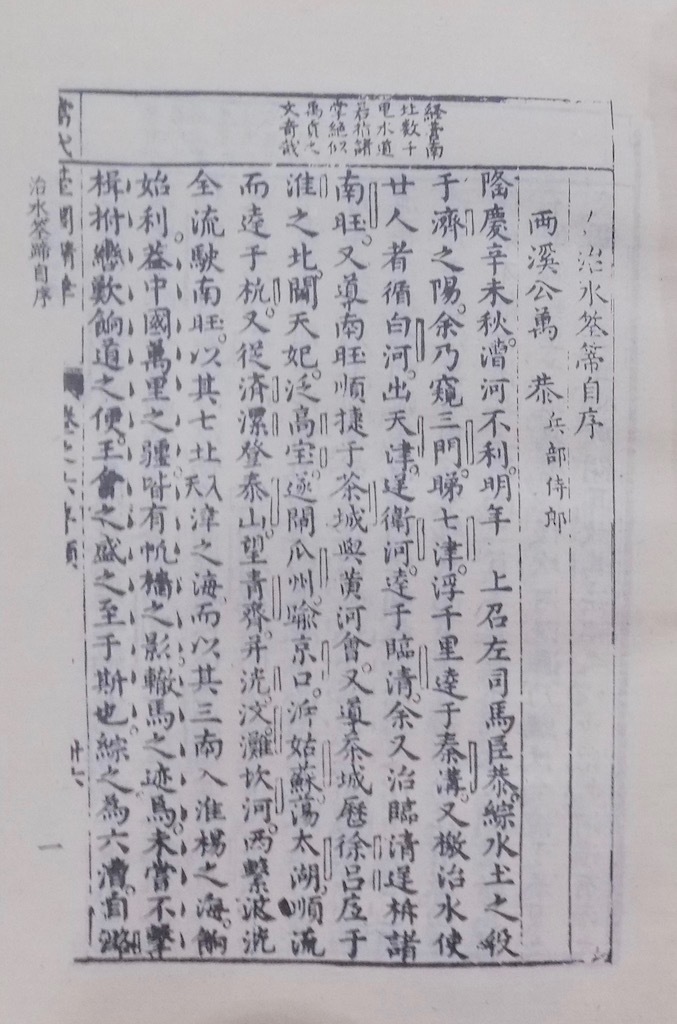 經畫南
北數千
里水道
若指諸
掌絕似
禹貢之
文奇哉
治水筌蹄自序
兩溪公萬 恭 兵部侍郎
隆慶辛未秋漕河不利明年 上召左司馬臣恭綜水土之役
于濟之陽余乃窺三門睇七津浮千里達于秦溝又檄治水使
廿人者循白河出天津逞衛河達于臨清余又治臨清逞栫諸
南旺又導南旺順捷于茶城與黃河會又導茶城歷徐呂底于
淮之北闢天妃泛高宝遂閘瓜州踰京口泝姑蘇蕩太湖順流
而達于杭又從濟漯登泰山望青齊并洸汶灘坎河西繫波洸
全流駛南旺以其七北入天津之海而以其三南入淮楊之海餉
始利益中國萬里之疆皆有帆檣之影轍馬之迹焉未嘗不擊
楫拊 歎餉道之便王會之盛之至于斯也綜之為六漕首
當代
治水筌蹄自序
卷之六
廿六
一